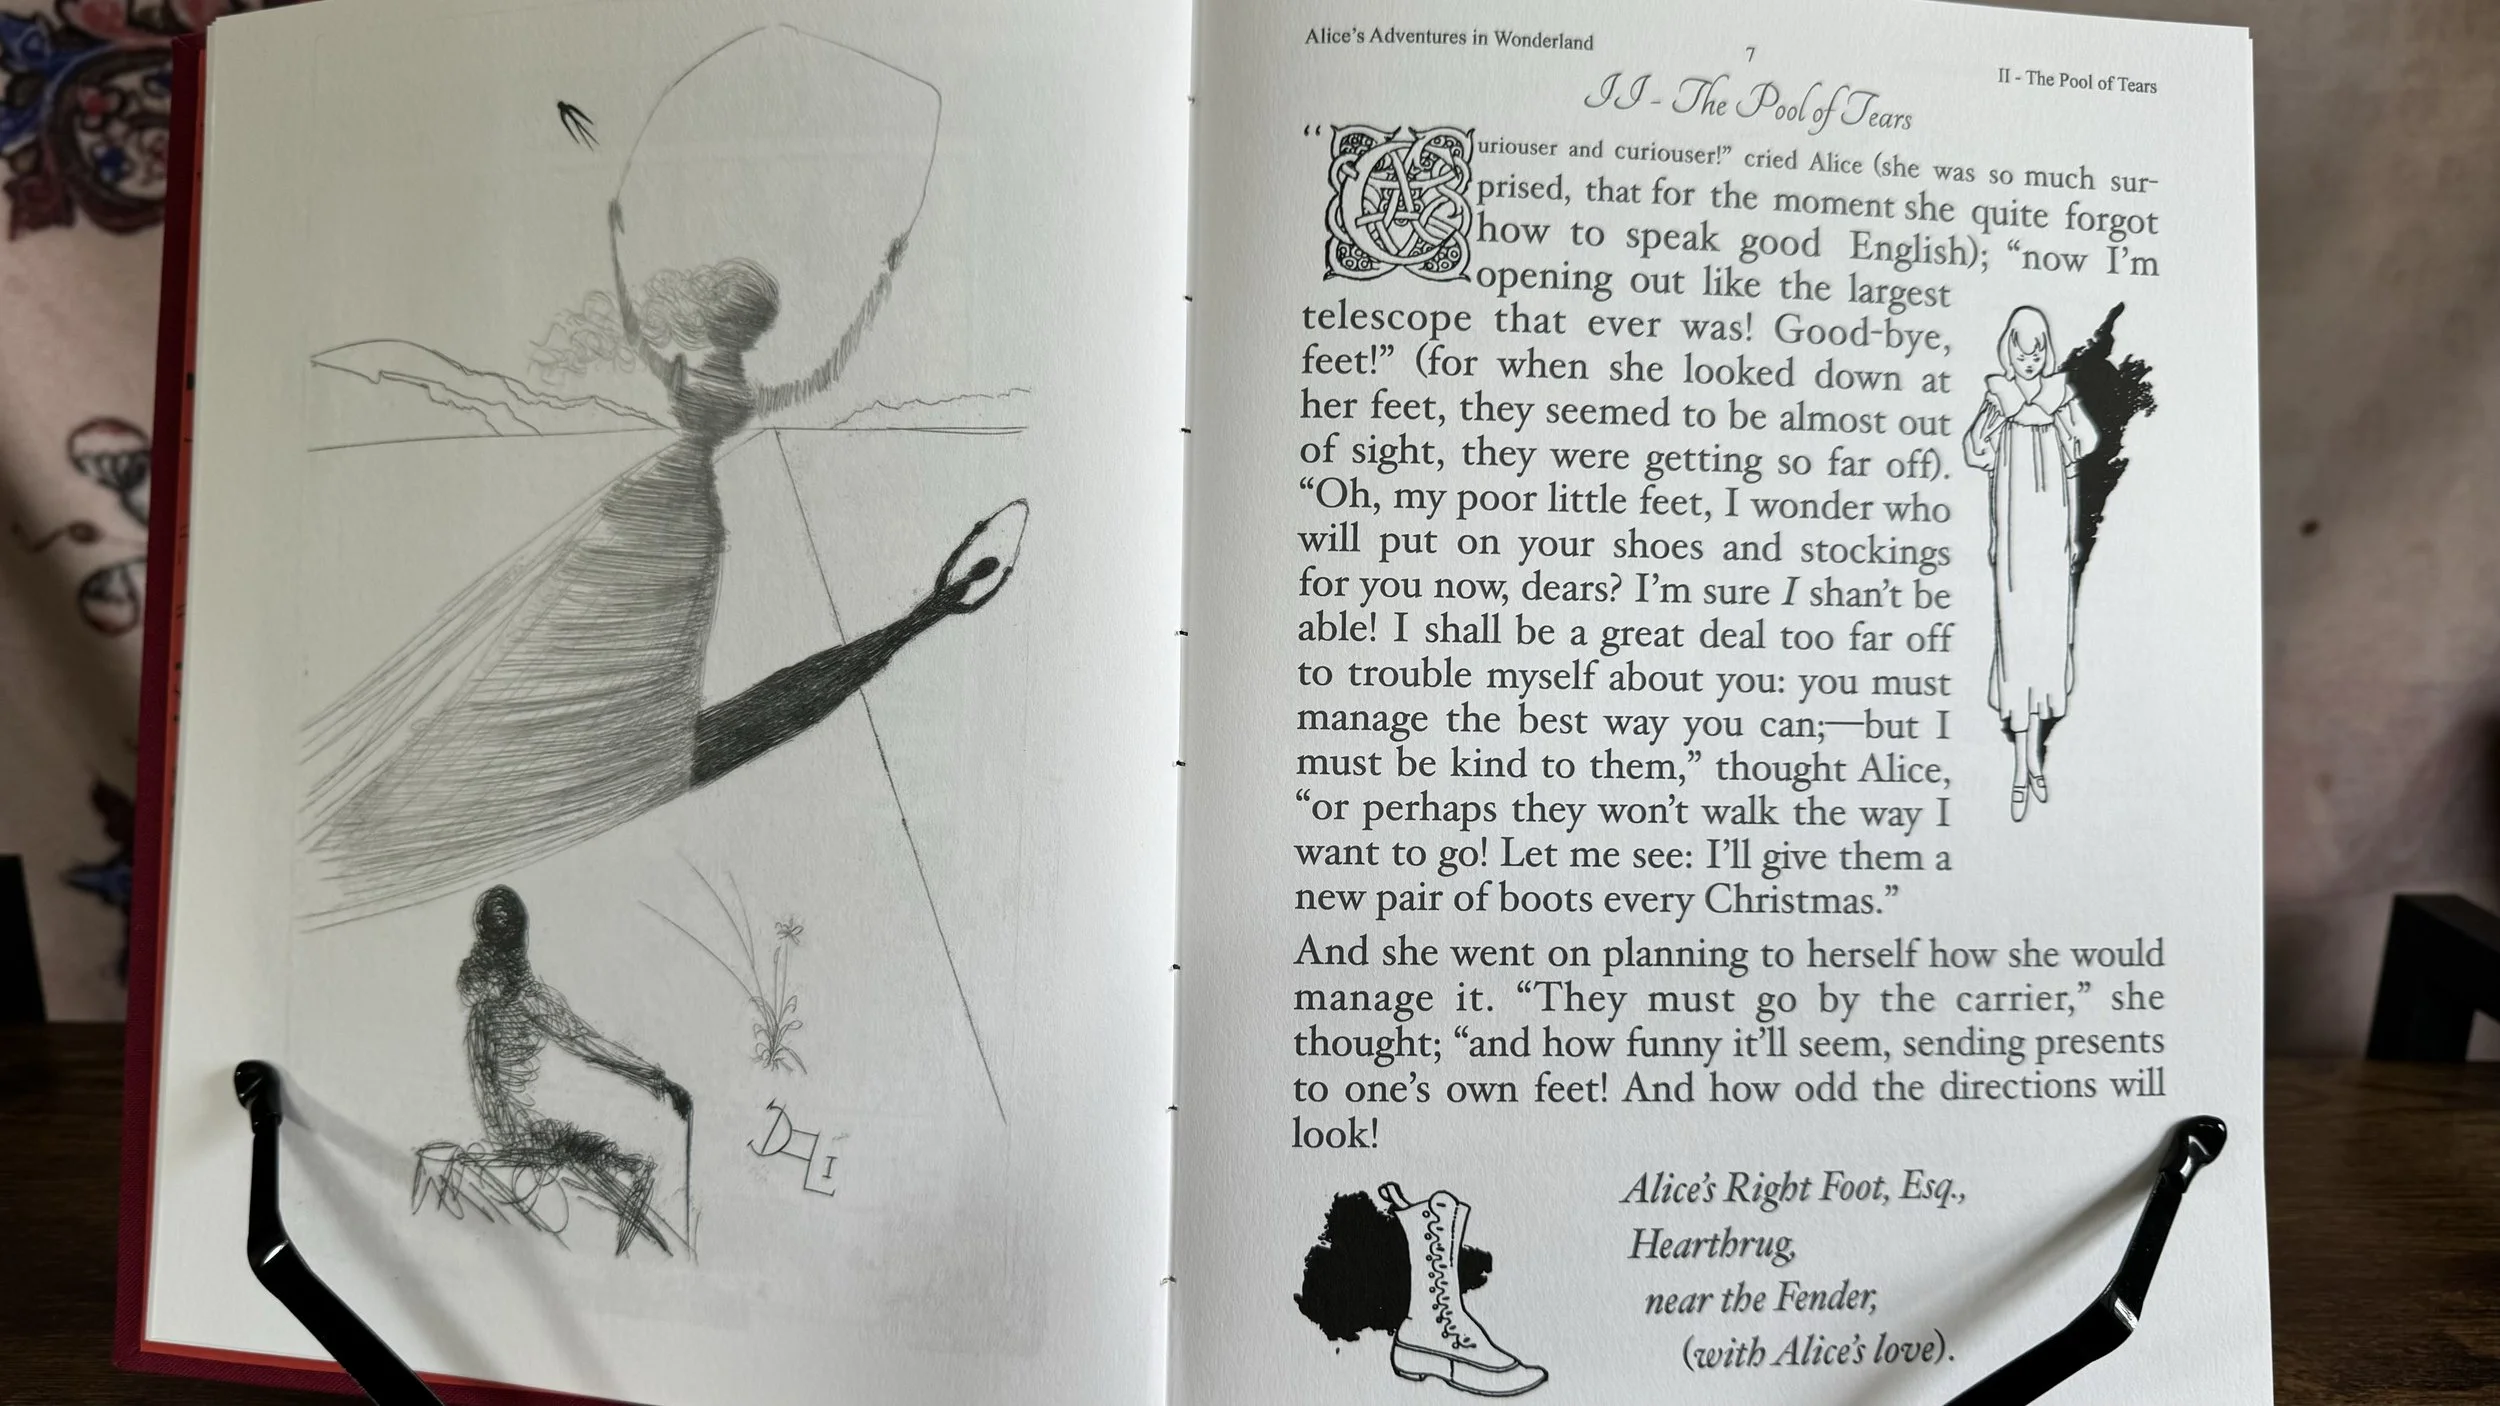 DALI
Alice's Adventures in Wonderland
7
II - The Pool of Tears
II - The Pool of Tears
“Curiouser and curiouser!” cried Alice (she was so much sur-
prised, that for the moment she quite forgot
how to speak good English); “now I'm
opening out like the largest
telescope that ever was! Good-bye,
feet!” (for when she looked down at
her feet, they seemed to be almost out
of sight, they were getting so far off).
“Oh, my poor little feet, I wonder who
will put on your shoes and stockings
for you now, dears? I'm sure I shan't be
able! I shall be a great deal too far off
to trouble myself about you: you must
manage the best way you can;—but I
must be kind to them,” thought Alice,
“or perhaps they won't walk the way I
want to go! Let me see: I'll give them a
new pair of boots every Christmas.”
And she went on planning to herself how she would
manage it. “They must go by the carrier,” she
thought; “and how funny it'll seem, sending presents
to one's own feet! And how odd the directions will
look!
Alice's Right Foot, Esq.,
Hearthrug,
near the Fender,
(with Alice's love).